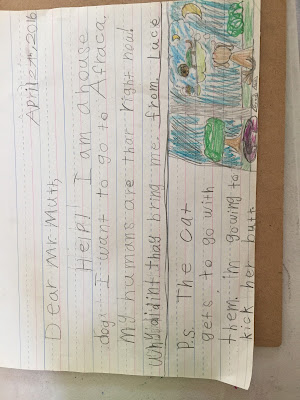 April 2016
Dear Mr. Muth,
Help! I am a house
dog. I want to go to Afraca.
My humans are thar right now!
Why didint thay bring me. from Luce
P.s. The cat
gets to go with
them. i'm gowing to
kick her buth